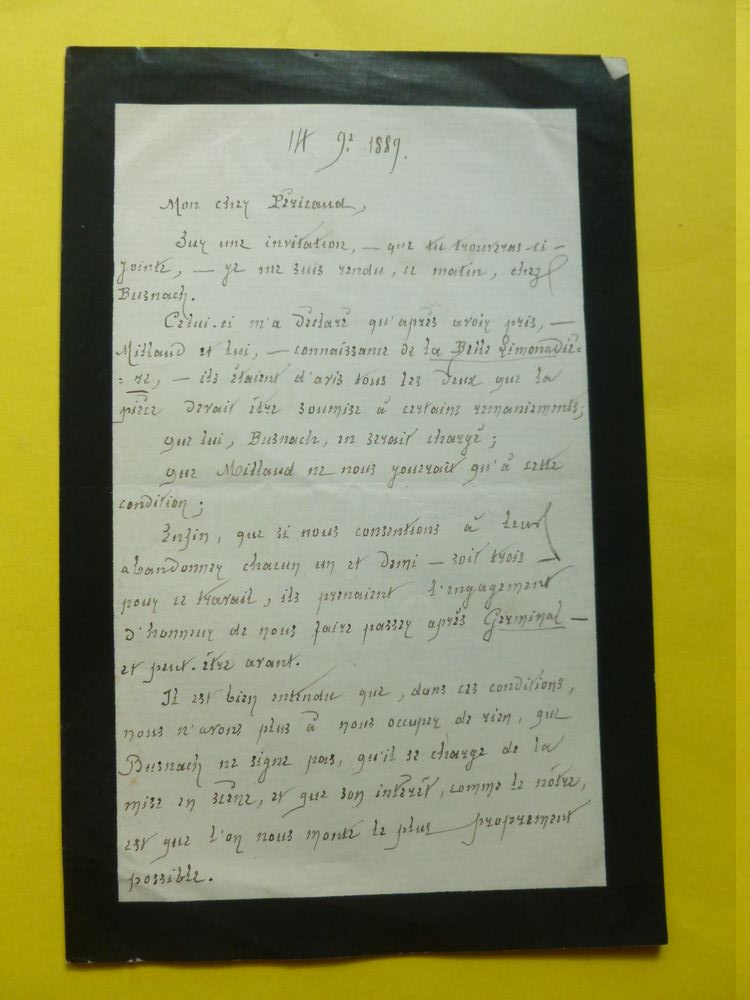 14 9.ᵇ 1887.
Mon cher Péricaud,
Sur une invitation, — que tu trouveras ci-
jointe, — je me suis rendu, ce matin, chez
Busnach.
Celui-ci m'a déclaré qu'après avoir pris, —
Millaud et lui, — connaissance de la Belle Limonadiè-
=re, — ils étaient d'avis tous les deux que la
pièce devait être soumise à certains remaniements;
que lui, Busnach, en serait chargé;
que Millaud ne nous jouerait qu'à cette
condition;
Enfin, que si nous consentions à leur
abandonner chacun un et demi — soit trois —
pour ce travail, ils prenaient l'engagement
d'honneur de nous faire passer après Germinal —
et peut-être avant.
Il est bien entendu que, dans ces conditions,
nous n'avons plus à nous occuper de rien, que
Busnach ne signe pas, qu'il se charge de la
mise en scène, et que son intérêt, comme le nôtre,
est que l'on nous monte le plus proprement
possible.